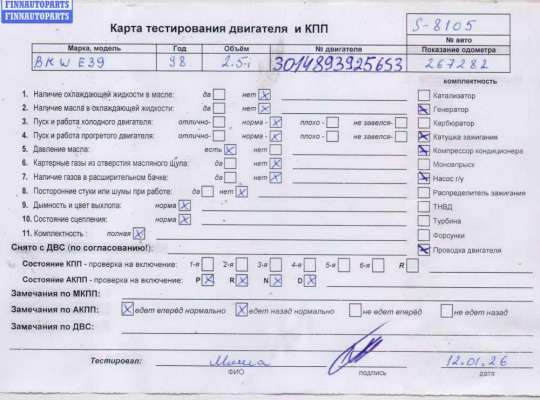 FINNAUTOPARTS
FINNAUTOPARTS
Карта тестирования двигателя и КПП
S-8105
№ авто
Марка, модель Год Объём № двигателя Показание одометра
BMW E39 98 2.5i 3014893925653 267282
комплектность
1. Наличие охлаждающей жидкости в масле: да нет X
Катализатор
2. Наличие масла в охлаждающей жидкости: да нет X
X Генератор
3. Пуск и работа холодного двигателя: отлично- норма - X плохо - не завелся-
Карбюратор
4. Пуск и работа прогретого двигателя: отлично- норма - X плохо - не завелся-
X Катушка зажигания
5. Давление масла: есть X нет
X Компрессор кондиционера
6. Картерные газы из отверстия масляного щупа: да нет X
Моновпрыск
7. Наличие газов в расширительном бачке: да нет X
X Насос г/у
8. Посторонние стуки или шумы при работе: да нет X
Распределитель зажигания
9. Дымность и цвет выхлопа: норма X
ТНВД
10. Состояние сцепления: норма X
Турбина
11. Комплектность : полная X
Форсунки
Снято с ДВС (по согласованию!):
X Проводка двигателя
Состояние КПП - проверка на включение: 1-я 2-я 3-я 4-я 5-я 6-я R
Состояние АКПП - проверка на включение: P X R X N X D X
Замечания по МКПП:
Замечания по АКПП: X едет вперёд нормально X едет назад нормально не едет вперёд не едет назад
Замечания по ДВС:
Тестировал: Миша 12.01.26
ФИО подпись дата